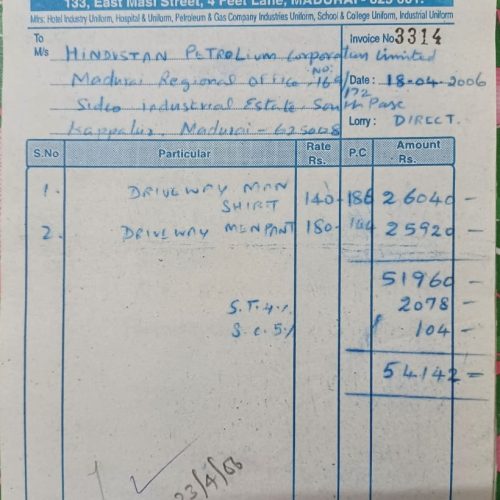 133, East Masi Street, 4 Feet Lane, MADURAI - 625 001.
Mfrs: Hotel Industry Uniform, Hospital & Uniform, Petroleum & Gas Company Industries Uniform, School & College Uniform, Industrial Uniform
To
M/s HINDUSTAN PETROLIUM Corporation Limited
Invoice No 3314
Madurai Regional office, NO: 164/172
Date: 18-04-2006
Sidco industrial Estate, South Parc
Kappalur, Madurai - 625008
Lorry: DIRECT.
S.No Particular Rate Rs. P.C Amount Rs.
1. DRIVEWAY MAN SHIRT 140- 186 26040-
2. DRIVEWAY MENPANT 180- 144 25920-
51960-
S.T. 4% 2078-
S.C. 5% 104-
54142=
23/4/06